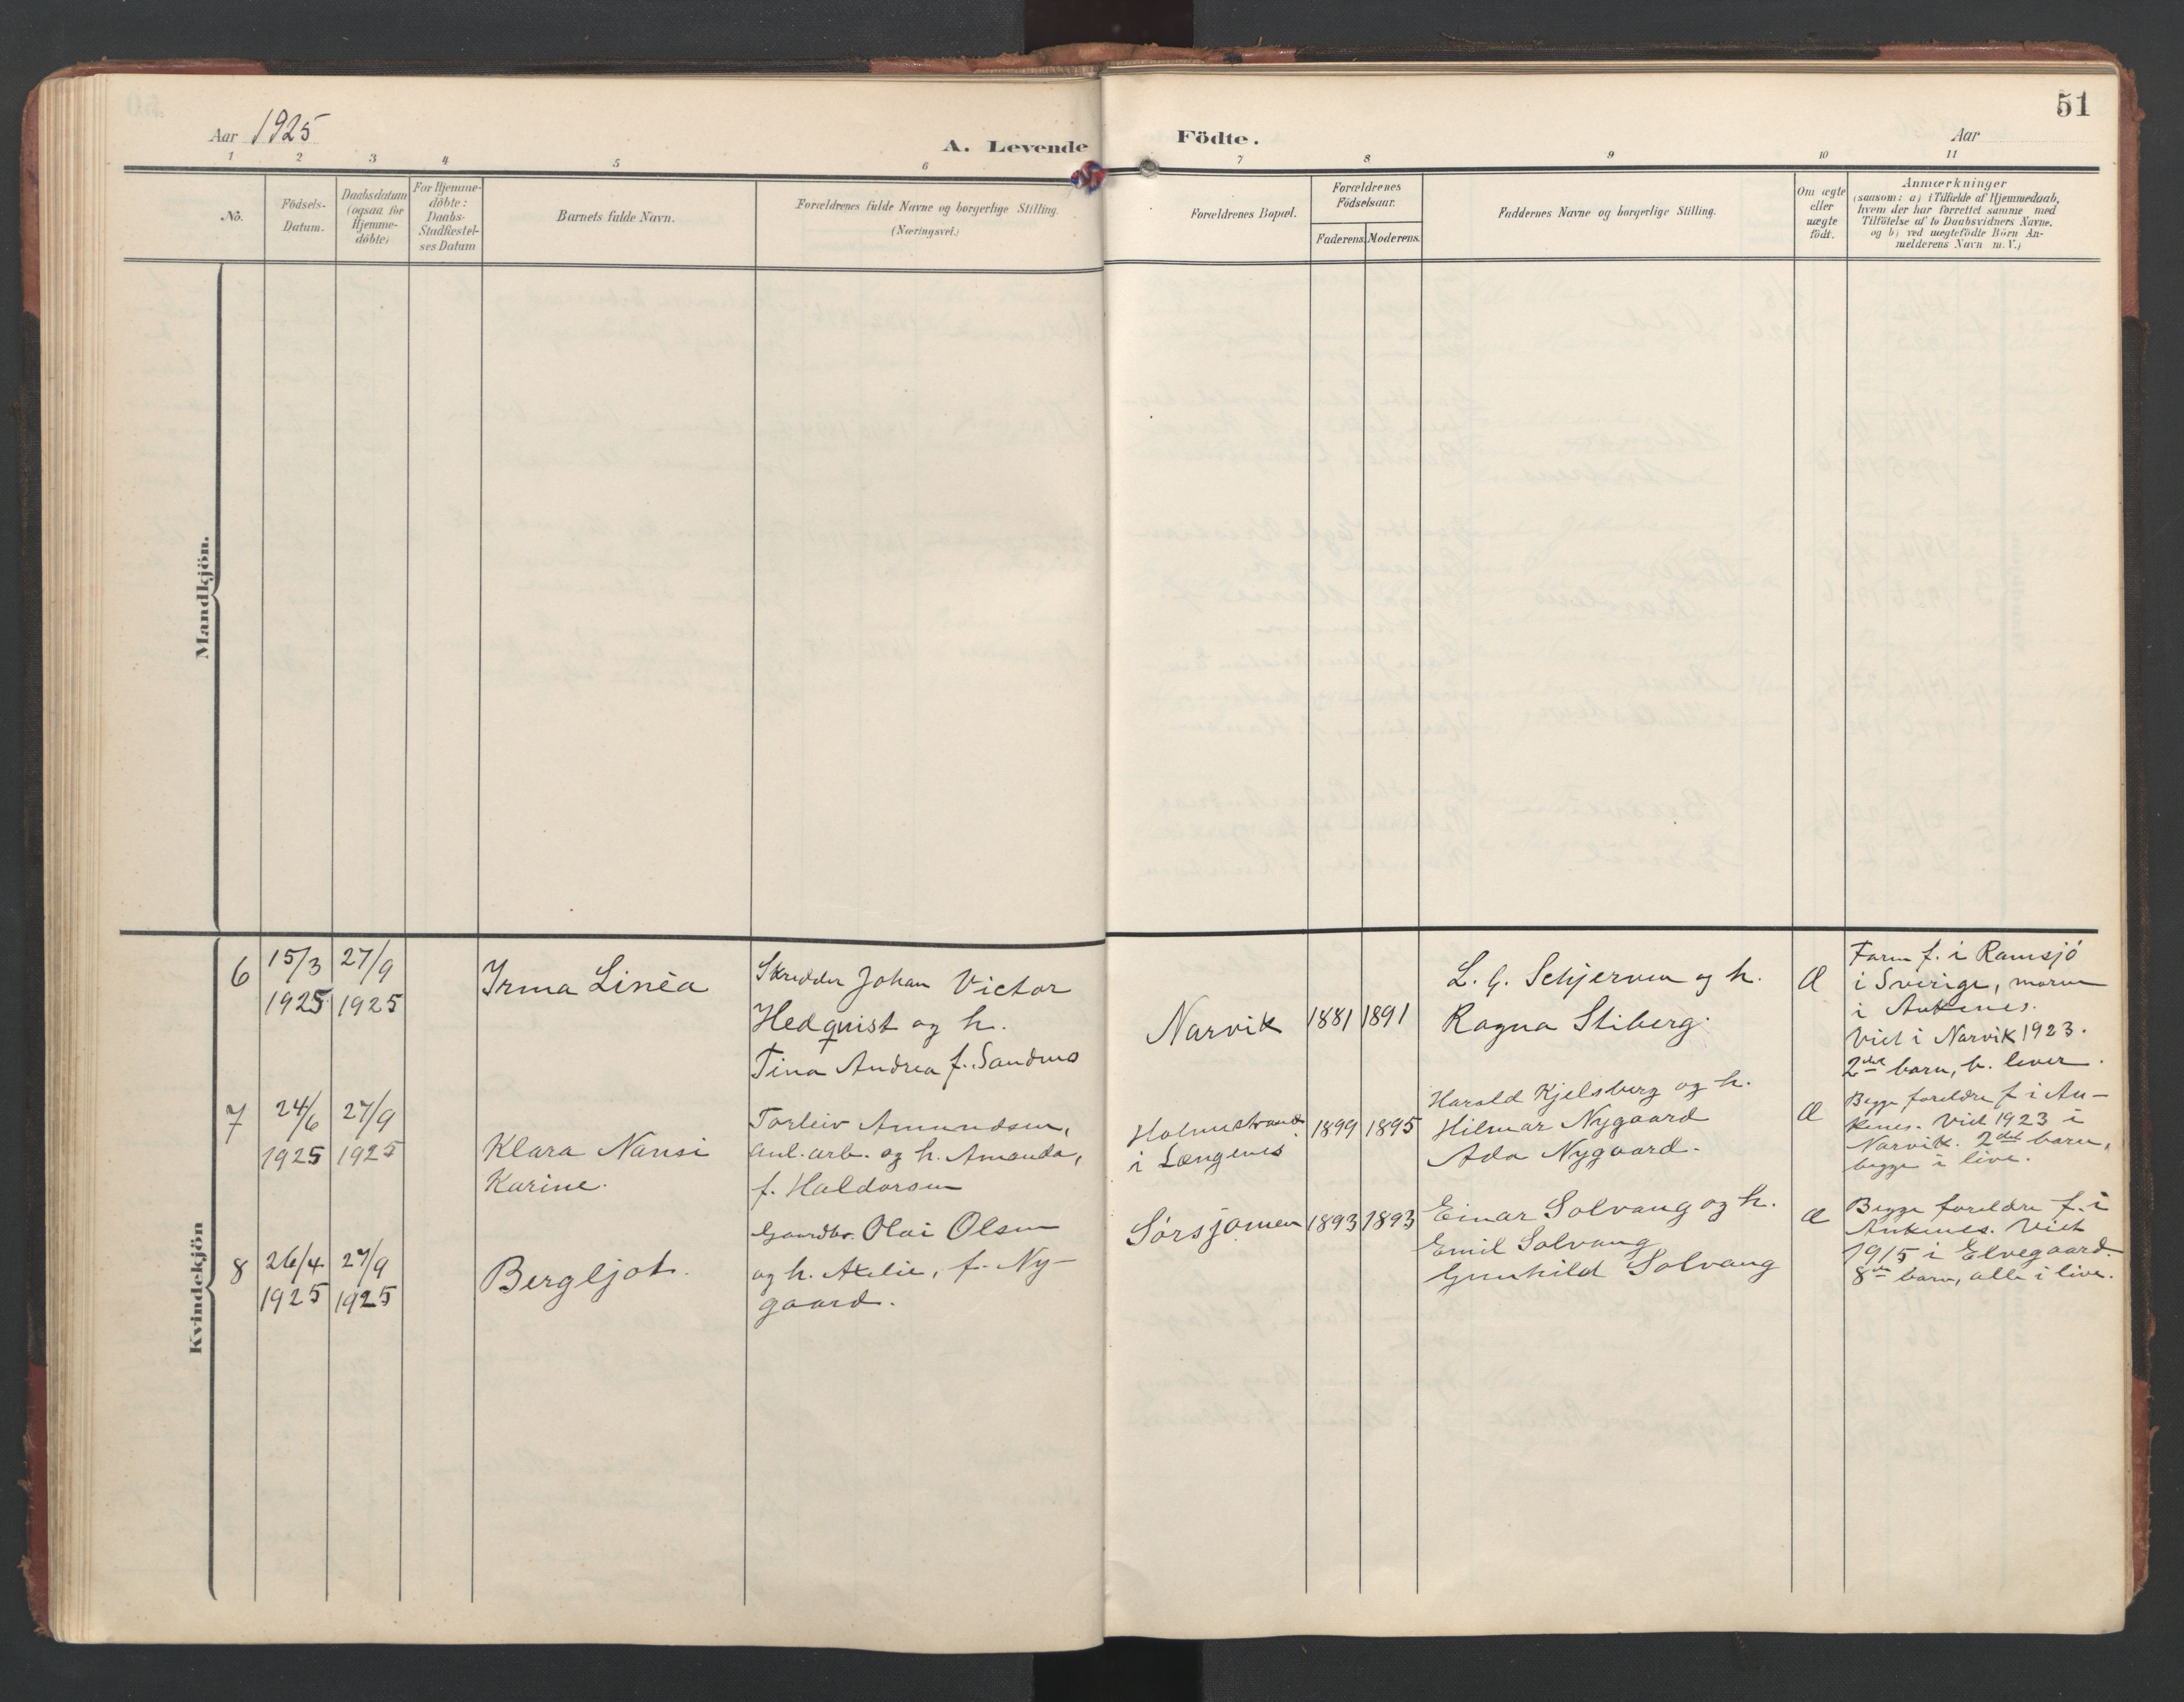 51
Aar 1925
A. Levende Födte.
Aar
1 2 3 4 5 6 7 8 9 10 11
No.
Födsels-
Datum.
Daabsdatum
(ogsaa for
Hjemme-
döbte)
For Hjemme-
döbte:
Daabs-
Stadfæstel-
ses Datum
Barnets fulde Navn.
Forældrenes fulde Navne og borgerlige Stilling.
(Næringsvei.)
Forældrenes Bopæl.
Forældrenes
Födselsaar.
Faderens. Moderens.
Faddernes Navne og borgerlige Stilling.
Om ægte
eller
uægte
födt.
Anmærkninger
(saasom: a) i Tilfælde af Hjemmedaab,
hvem der har forrettet samme med
Tilföielse af to Daabsvidners Navne,
og b) ved uægtefödte Börn An-
melderens Navn m. V.)
Mandkjön.
Kvindekjön
6
15/3
1925
27/9
1925
Irma Linèa
Skredder Johan Victor
Hedqvist og h.
Tina Andrea f. Sandmo
Narvik
1881 1891
L. G. Schjerven og h.
Ragna Stiberg.
Æ
Faren f. i Ramsjö
i Sverige, moren
i Ankenes.
Viet i Narvik 1923.
2det barn, b. lever.
7
24/6
1925
27/9
1925
Klara Nansi
Karine.
Torleiv Amundsen,
anl. arb. og h. Amanda,
f. Haldorsen
Holmestrand
i Længenes
1899 1895
Harald Kjelsberg og h.
Hilmar Nygaard
Ada Nygaard.
Æ
Begge foreldre f. i An-
kenes. Viet 1923 i
Narvik. 2det barn,
begge i live.
8
26/4
1925
27/9
1925
Bergljot.
Gaardbr. Olai Olsen
og h. Axelie, f. Ny-
gaard.
Sørsjomen
1893 1893
Einar Solvang og h.
Emil Solvang
Gunhild Solvang
Æ
Begge foreldre f. i
Ankenes. Viet
1915 i Elvegaard.
8de barn, alle i live.